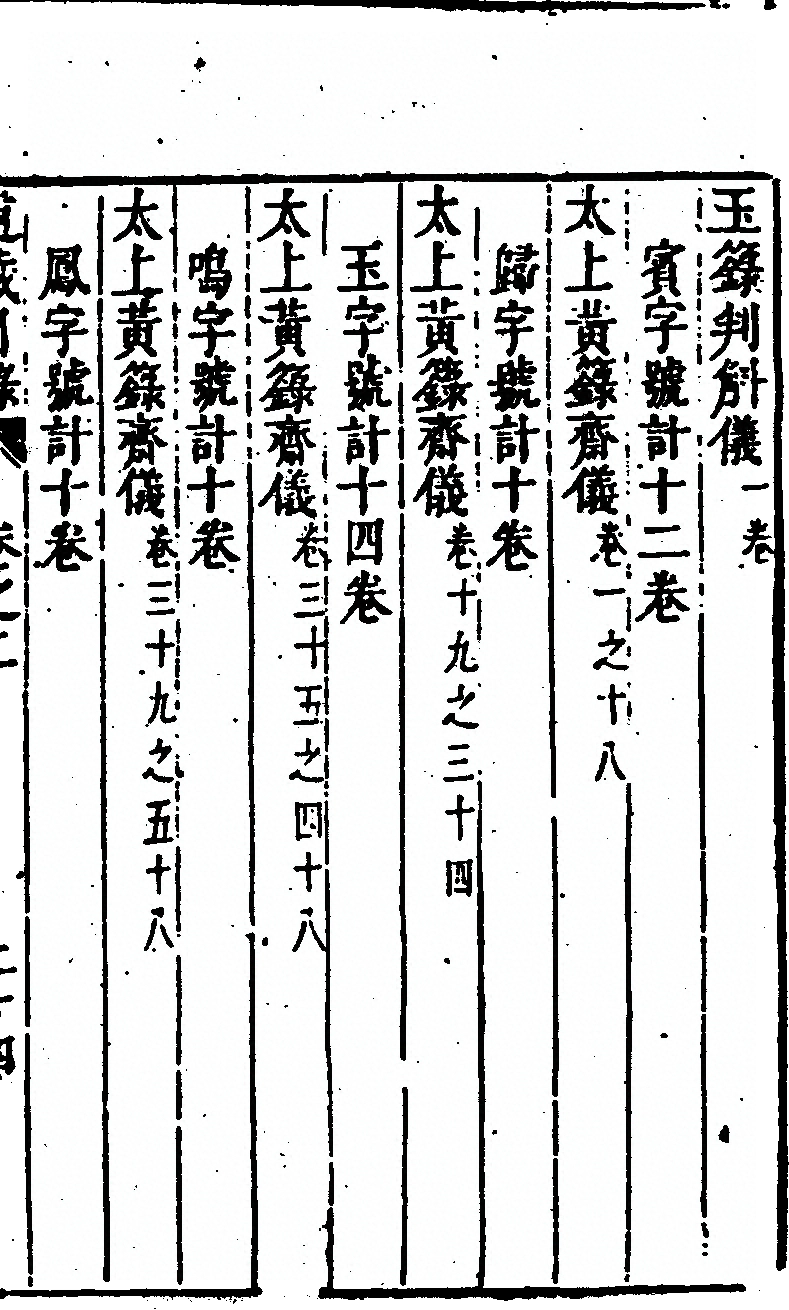 玉籙判斛儀一卷
賓字號計十二卷
太上黃籙齋儀卷一之十八
歸字號計十卷
太上黃籙齋儀卷十九之三十四
玉字號計十四卷
太上黃籙齋儀卷三十五之四十八
鳴字號計十卷
太上黃籙齋儀卷三十九之五十八
鳳字號計十卷